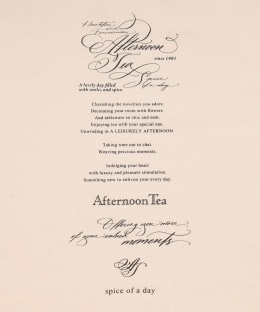 Afternoon
Tea
since 1981
A lovely day filled
with smiles and spice.
Spice
of a day
Cherishing the novelties you adore.
Decorating your room with flowers.
And tableware so chic and neat.
Enjoying tea with your special one.
Unwinding in A LEISURELY AFTERNOON.
Taking time out to chat.
Weaving precious moments.
Indulging your heart
with luxury and pleasant stimulation.
Something new to enliven your every day.
Afternoon Tea
Offering you more
of your valued moments
spice of a day